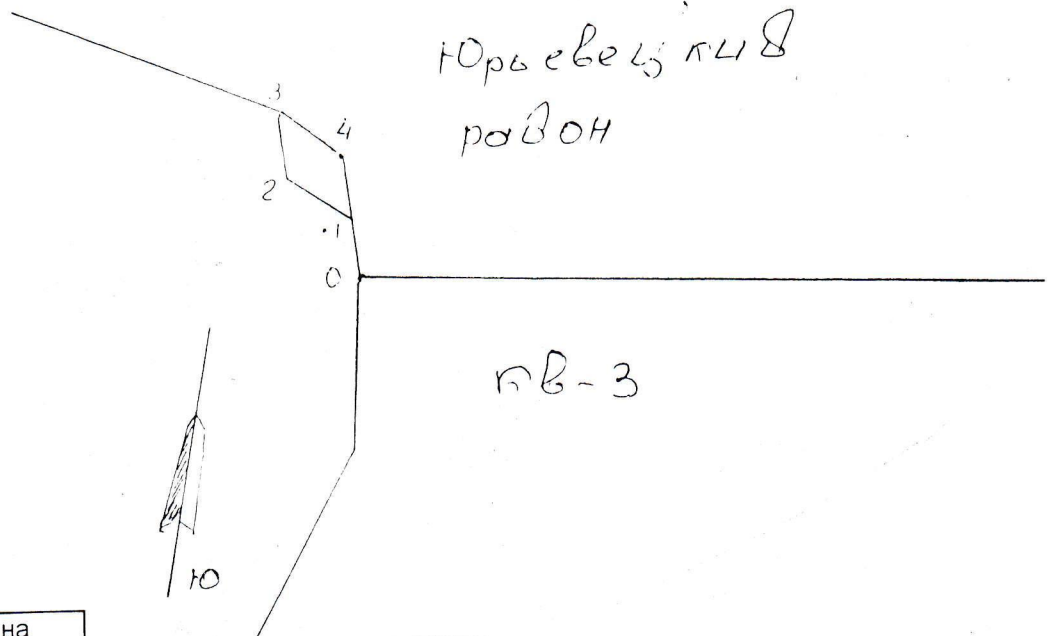 Юрьевецкий
район
3
4
2
1
0
кв-3
Ю
на